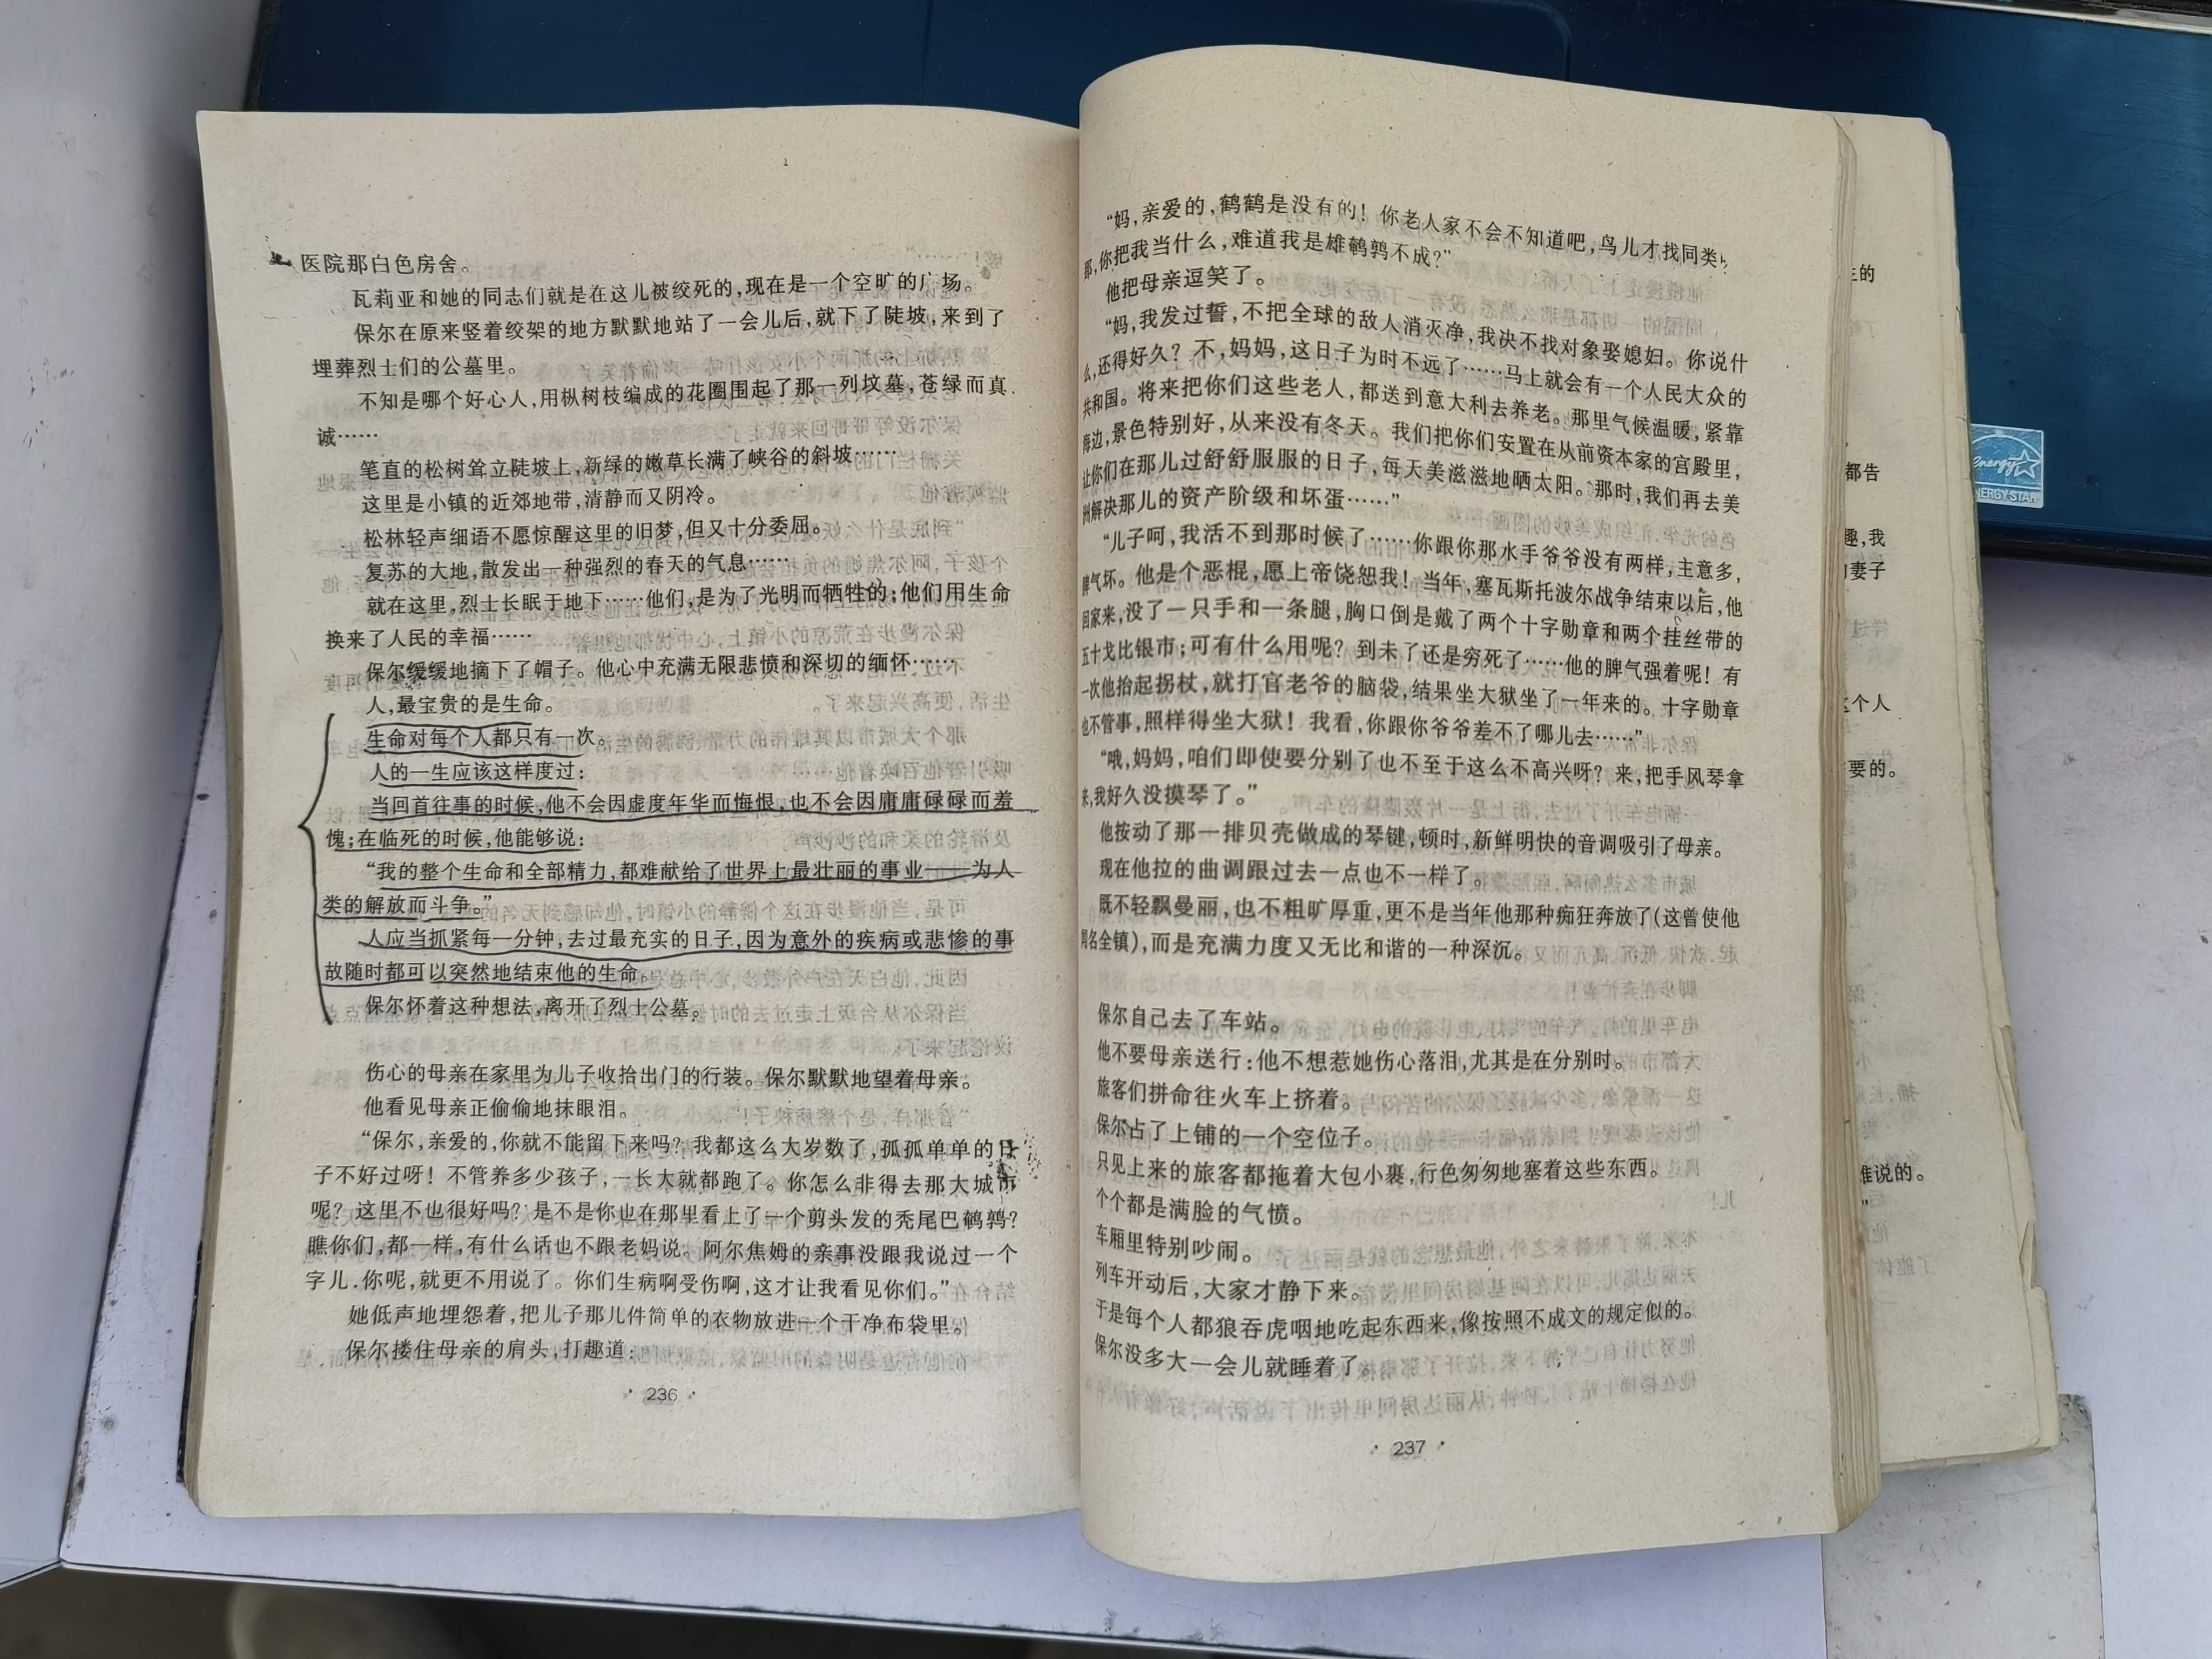 医院那白色房舍。
瓦莉亚和她的同志们就是在这儿被绞死的,现在是一个空旷的广场。
保尔在原来竖着绞架的地方默默地站了一会儿后,就下了陡坡,来到了
埋葬烈士们的公墓里。
不知是哪个好心人,用枞树枝编成的花圈围起了那一列坟墓,苍绿而真
诚……
笔直的松树耸立陡坡上,新绿的嫩草长满了峡谷的斜坡……
这里是小镇的近郊地带,清静而又阴冷。
松林轻声细语不愿惊醒这里的旧梦,但又十分委屈。
复苏的大地,散发出一种强烈的春天的气息……
就在这里,烈士长眠于地下……他们,是为了光明而牺牲的;他们用生命
换来了人民的幸福……
保尔缓缓地摘下了帽子。他心中充满无限悲愤和深切的缅怀……
人,最宝贵的是生命。
生命对每个人都只有一次。
人的一生应该这样度过:
当回首往事的时候,他不会因虚度年华而悔恨,也不会因庸庸碌碌而羞
愧;在临死的时候,他能够说:
“我的整个生命和全部精力,都难献给了世界上最壮丽的事业——为人
类的解放而斗争。”
人应当抓紧每一分钟,去过最充实的日子,因为意外的疾病或悲惨的事
故随时都可以突然地结束他的生命。
保尔怀着这种想法,离开了烈士公墓。
伤心的母亲在家里为儿子收拾出门的行装。保尔默默地望着母亲。
他看见母亲正偷偷地抹眼泪。
“保尔,亲爱的,你就不能留下来吗?我都这么大岁数了,孤孤单单的日
子不好过呀!不管养多少孩子,一长大就都跑了。你怎么非得去那大城市
呢?这里不也很好吗?是不是你也在那里看上了一个剪头发的秃尾巴鹌鹑?
瞧你们,都一样,有什么话也不跟老妈说。阿尔焦姆的亲事没跟我说过一个
字儿.你呢,就更不用说了。你们生病啊受伤啊,这才让我看见你们。”
她低声地埋怨着,把儿子那几件简单的衣物放进一个干净布袋里。
保尔搂住母亲的肩头,打趣道:
· 236 ·
“妈,亲爱的,鹤鹤是没有的!你老人家不会不知道吧,鸟儿才找同类,
那,你把我当什么,难道我是雄鹌鹑不成?”
他把母亲逗笑了。
“妈,我发过誓,不把全球的敌人消灭净,我决不找对象娶媳妇。你说什
么,还得好久?不,妈妈,这日子为时不远了……马上就会有一个人民大众的
共和国。将来把你们这些老人,都送到意大利去养老。那里气候温暖,紧靠
海边,景色特别好,从来没有冬天。我们把你们安置在从前资本家的宫殿里,
让你们在那儿过舒舒服服的日子,每天美滋滋地晒太阳。那时,我们再去美
洲解决那儿的资产阶级和坏蛋……”
“儿子呵,我活不到那时候了……你跟你那水手爷爷没有两样,主意多,
脾气坏。他是个恶棍,愿上帝饶恕我!当年,塞瓦斯托波尔战争结束以后,他
回家来,没了一只手和一条腿,胸口倒是戴了两个十字勋章和两个挂丝带的
五十戈比银币;可有什么用呢?到未了还是穷死了……他的脾气强着呢!有
一次他抬起拐杖,就打官老爷的脑袋,结果坐大狱坐了一年来的。十字勋章
也不管事,照样得坐大狱!我看,你跟你爷爷差不了哪儿去……”
“哦,妈妈,咱们即使要分别了也不至于这么不高兴呀?来,把手风琴拿
来,我好久没摸琴了。”
他按动了那一排贝壳做成的琴键,顿时,新鲜明快的音调吸引了母亲。
现在他拉的曲调跟过去一点也不一样了。
既不轻飘曼丽,也不粗旷厚重,更不是当年他那种痴狂奔放了(这曾使他
闻名全镇),而是充满力度又无比和谐的一种深沉。
保尔自己去了车站。
他不要母亲送行:他不想惹她伤心落泪,尤其是在分别时。
旅客们拼命往火车上挤着。
保尔占了上铺的一个空位子。
只见上来的旅客都拖着大包小裹,行色匆匆地塞着这些东西。
个个都是满脸的气愤。
车厢里特别吵闹。
列车开动后,大家才静下来。
于是每个人都狼吞虎咽地吃起东西来,像按照不成文的规定似的。
保尔没多大一会儿就睡着了。
· 237 ·
的
都告
趣,我
妻子
这个人
要的。
难说的。
energy
ENERGY STAR